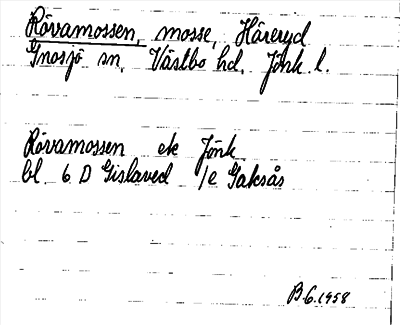 Rövamossen, mosse, Häreryd
Gnosjö sn, Västbo hd, Jönk. l.
Rövamossen ek Jönk
bl 6 D Gislaved 1e Gaksås
B.6.1958